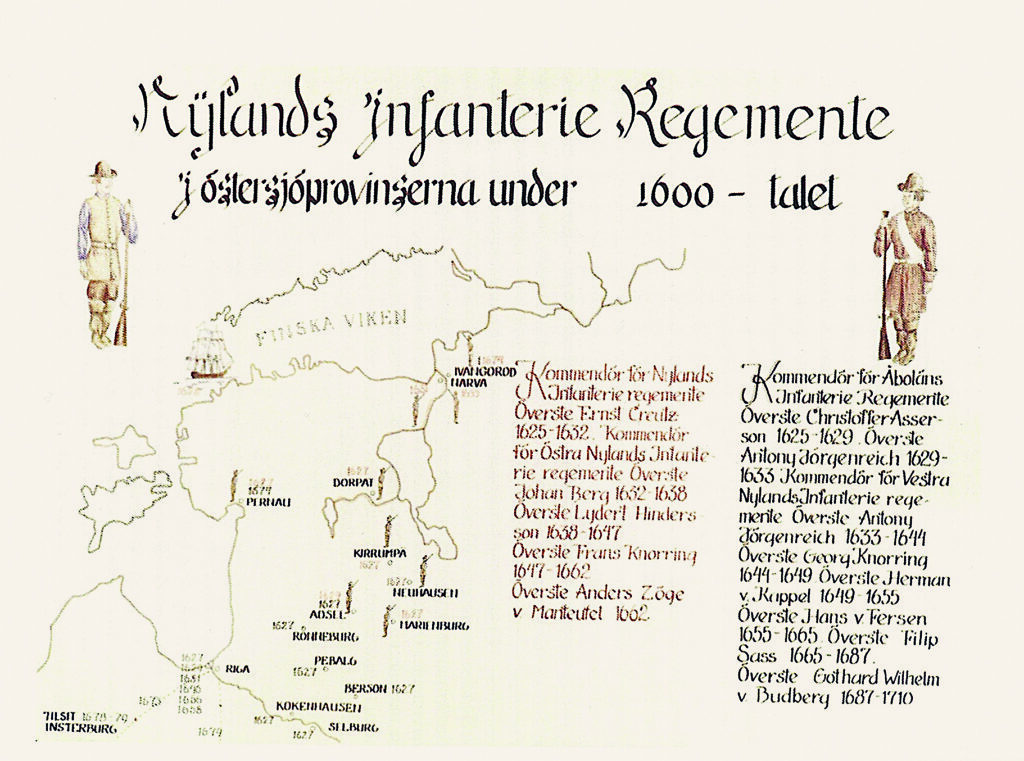 Nÿlands Infanterie Regemente
I östersjöprovinserna under 1600 - talet
FINSKA VIKEN
IVANGOROD
NARVA
DORPAT
1627
PERNAU
KIRRUMPA
1627
NEUHAUSEN
ADSEL
1627
MARIENBURG
1627
RONNEBURG
1627
PEBALG
1627
BERSON 1627
RIGA
1627
KOKENHAUSEN
1627
SELBURG
1627
1679
TILSIT 1678-79
INSTERBURG
Kommendör för Nylands
Infanterie regemente
Överste Ernst Creutz
1625-1632. Kommendör
för Östra Nylands Infante-
rie regemente Överste
Johan Berg 1632-1638
Överste Lydert Hinders-
son 1638-1647
Överste Frans Knorring
1647-1662
Överste Anders Zöge
v Manteufel 1662
Kommendör för Åboläns
Infanterie Regemente
Överste Christoffer Asser-
son 1625-1629. Överste
Antony Jörgenreich 1629-
1633 Kommendör för Vestra
Nylands Infanterie rege-
mente Överste Antony
Jörgenreich 1633-1644
Överste Georg Knorring
1644-1649 Överste Herman
v. Kappel 1649-1655
Överste Hans v Fersen
1655-1665. Överste Filip
Sass 1665-1687.
Överste Gothard Wilhelm
v Budberg 1687-1710